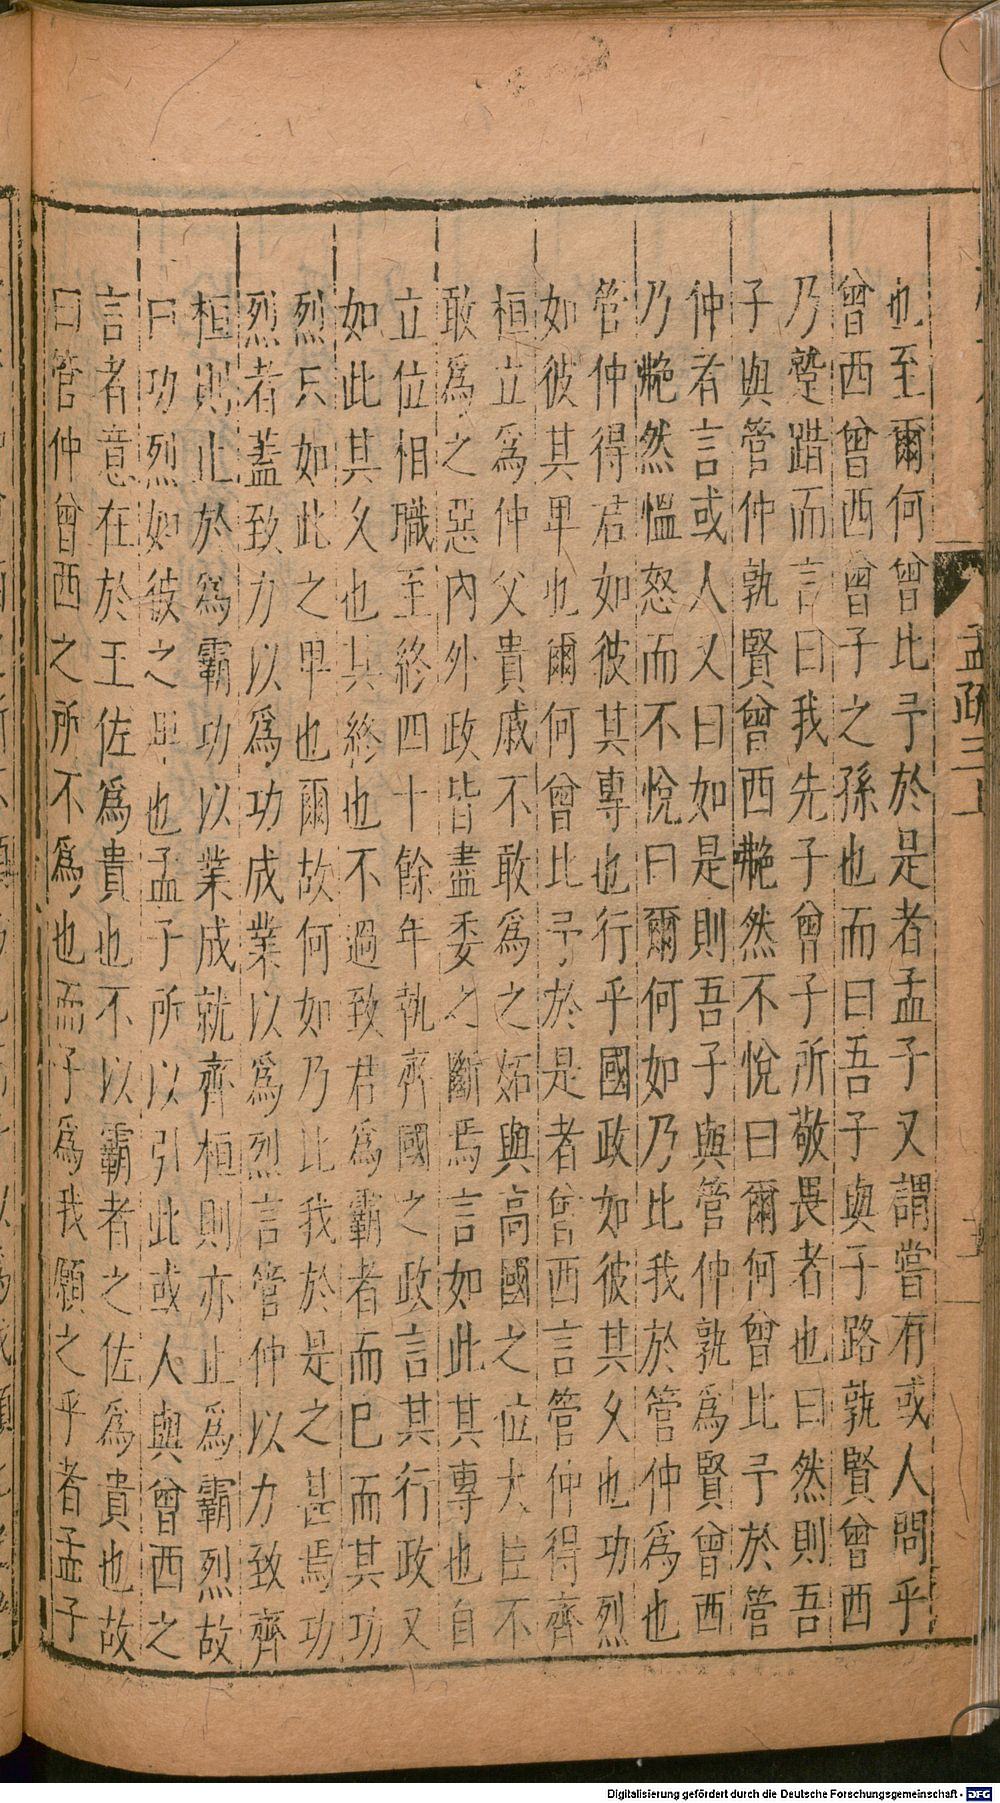 也至爾何曾比予於是者孟子又謂嘗有或人問乎
曾西曾西曾子之孫也而曰吾子與子路孰賢曾西
乃蹵踖而言曰我先子曾子所敬畏者也曰然則吾
子與管仲孰賢曾西艴然不悅曰爾何曾比予於管
仲者言或人又曰如是則吾子與管仲孰為賢曾西
乃艴然慍怒而不悅曰爾何如乃比我於管仲為也
管仲得君如彼其專也行乎國政如彼其久也功烈
如彼其卑也爾何曾比予於是者曾西言管仲得齊
桓立為仲父貴戚不敢為之妬與高國之位大臣不
敢為之惡內外政皆盡委之斷焉言如此其專也自
立位相職至終四十餘年執齊國之政言其行政又
如此其久也其終也不過致君為霸者而已而其功
烈只如此之卑也爾故何如乃比我於是之甚焉功
烈者蓋致力以為功成業以為烈言管仲以力致齊
桓則止於為霸功以業成就齊桓則亦止為霸烈故
曰功烈如彼之卑也孟子所以引此或人與曾西之
言者意在於王佐為貴也不以霸者之佐為貴也故
曰管仲曾西之所不為也而子為我願之乎者孟子
孟疏三上
Digitalisierung gefördert durch die Deutsche Forschungsgemeinschaft - DFG